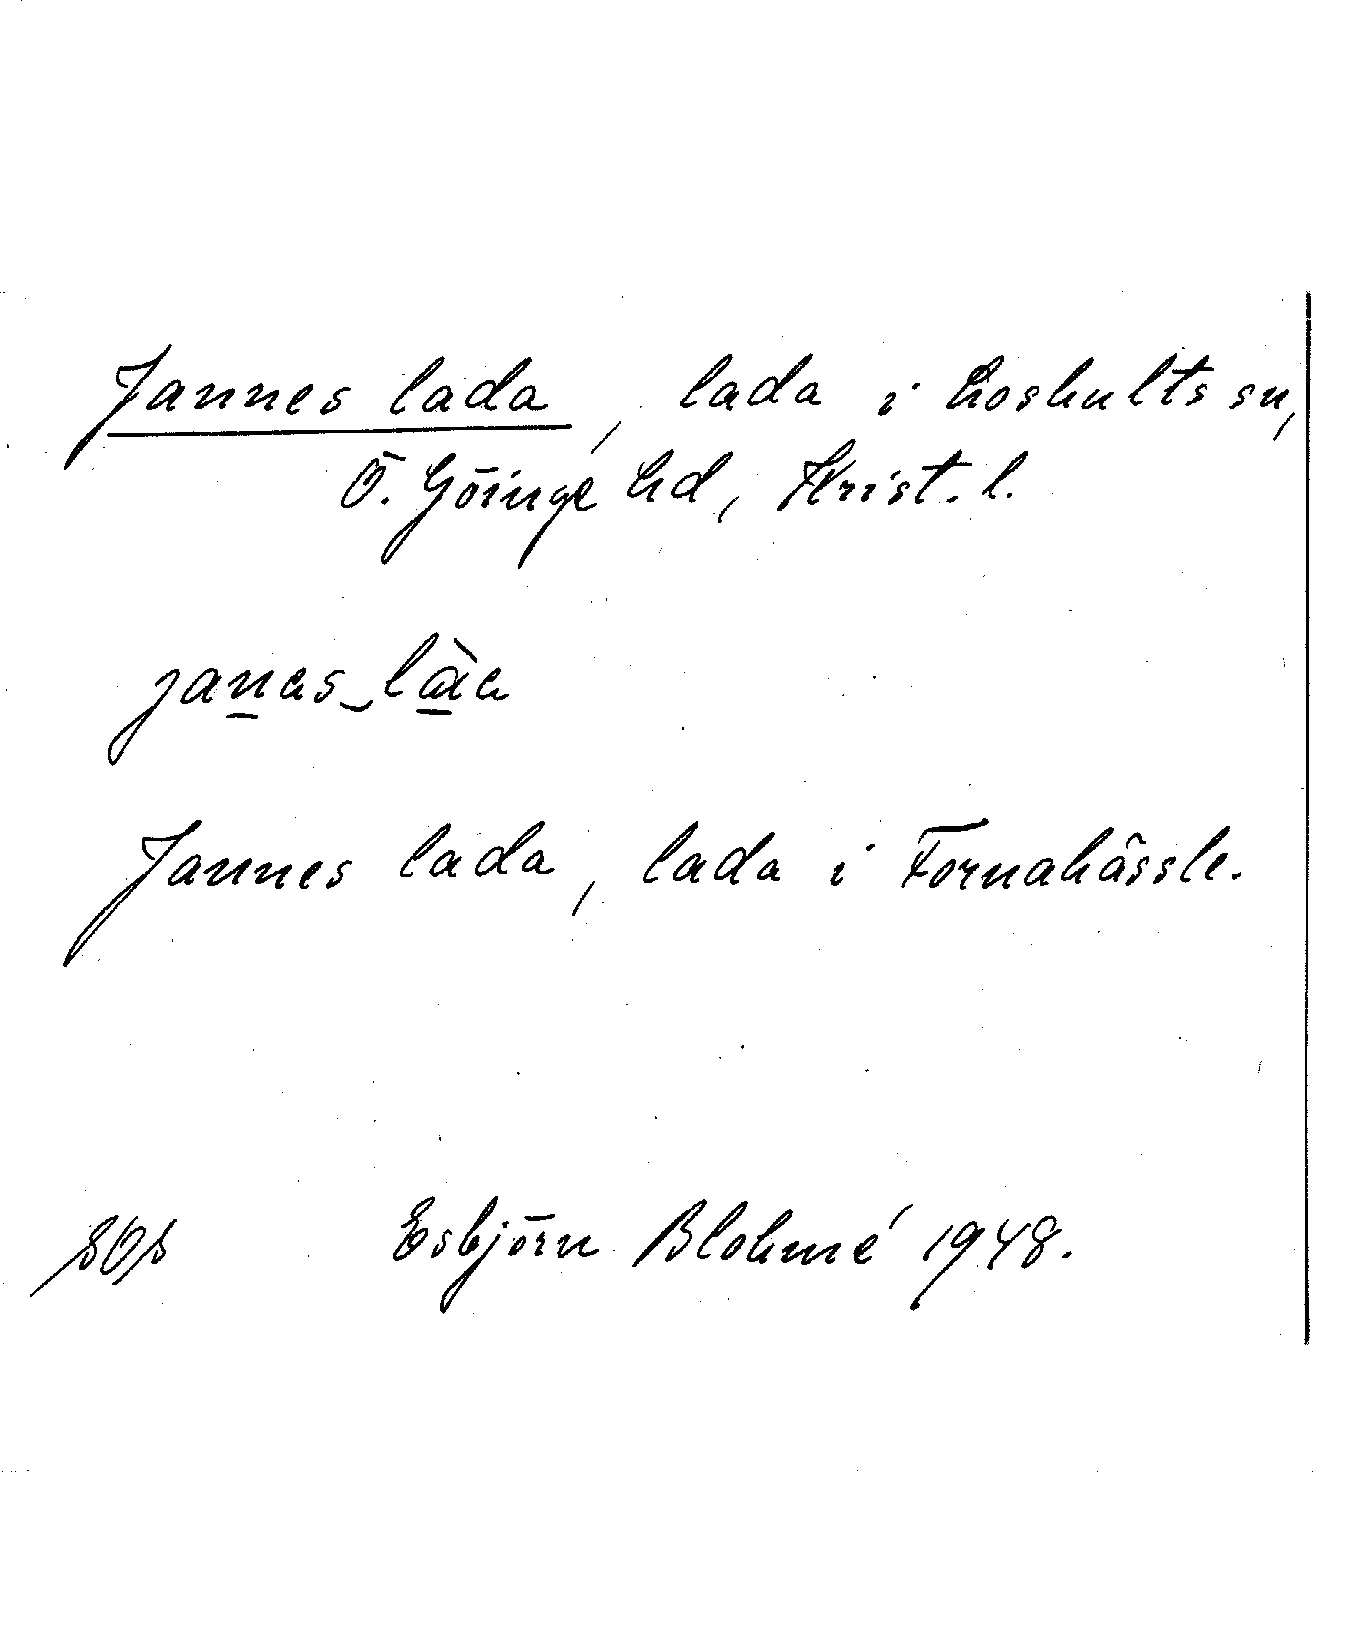 Jannes lada, lada i Loshults sn,
Ö. Göinge hd, Krist. l.
Jannes lada, lada i Fornahässle.
Esbjörn Blohmé 1948.